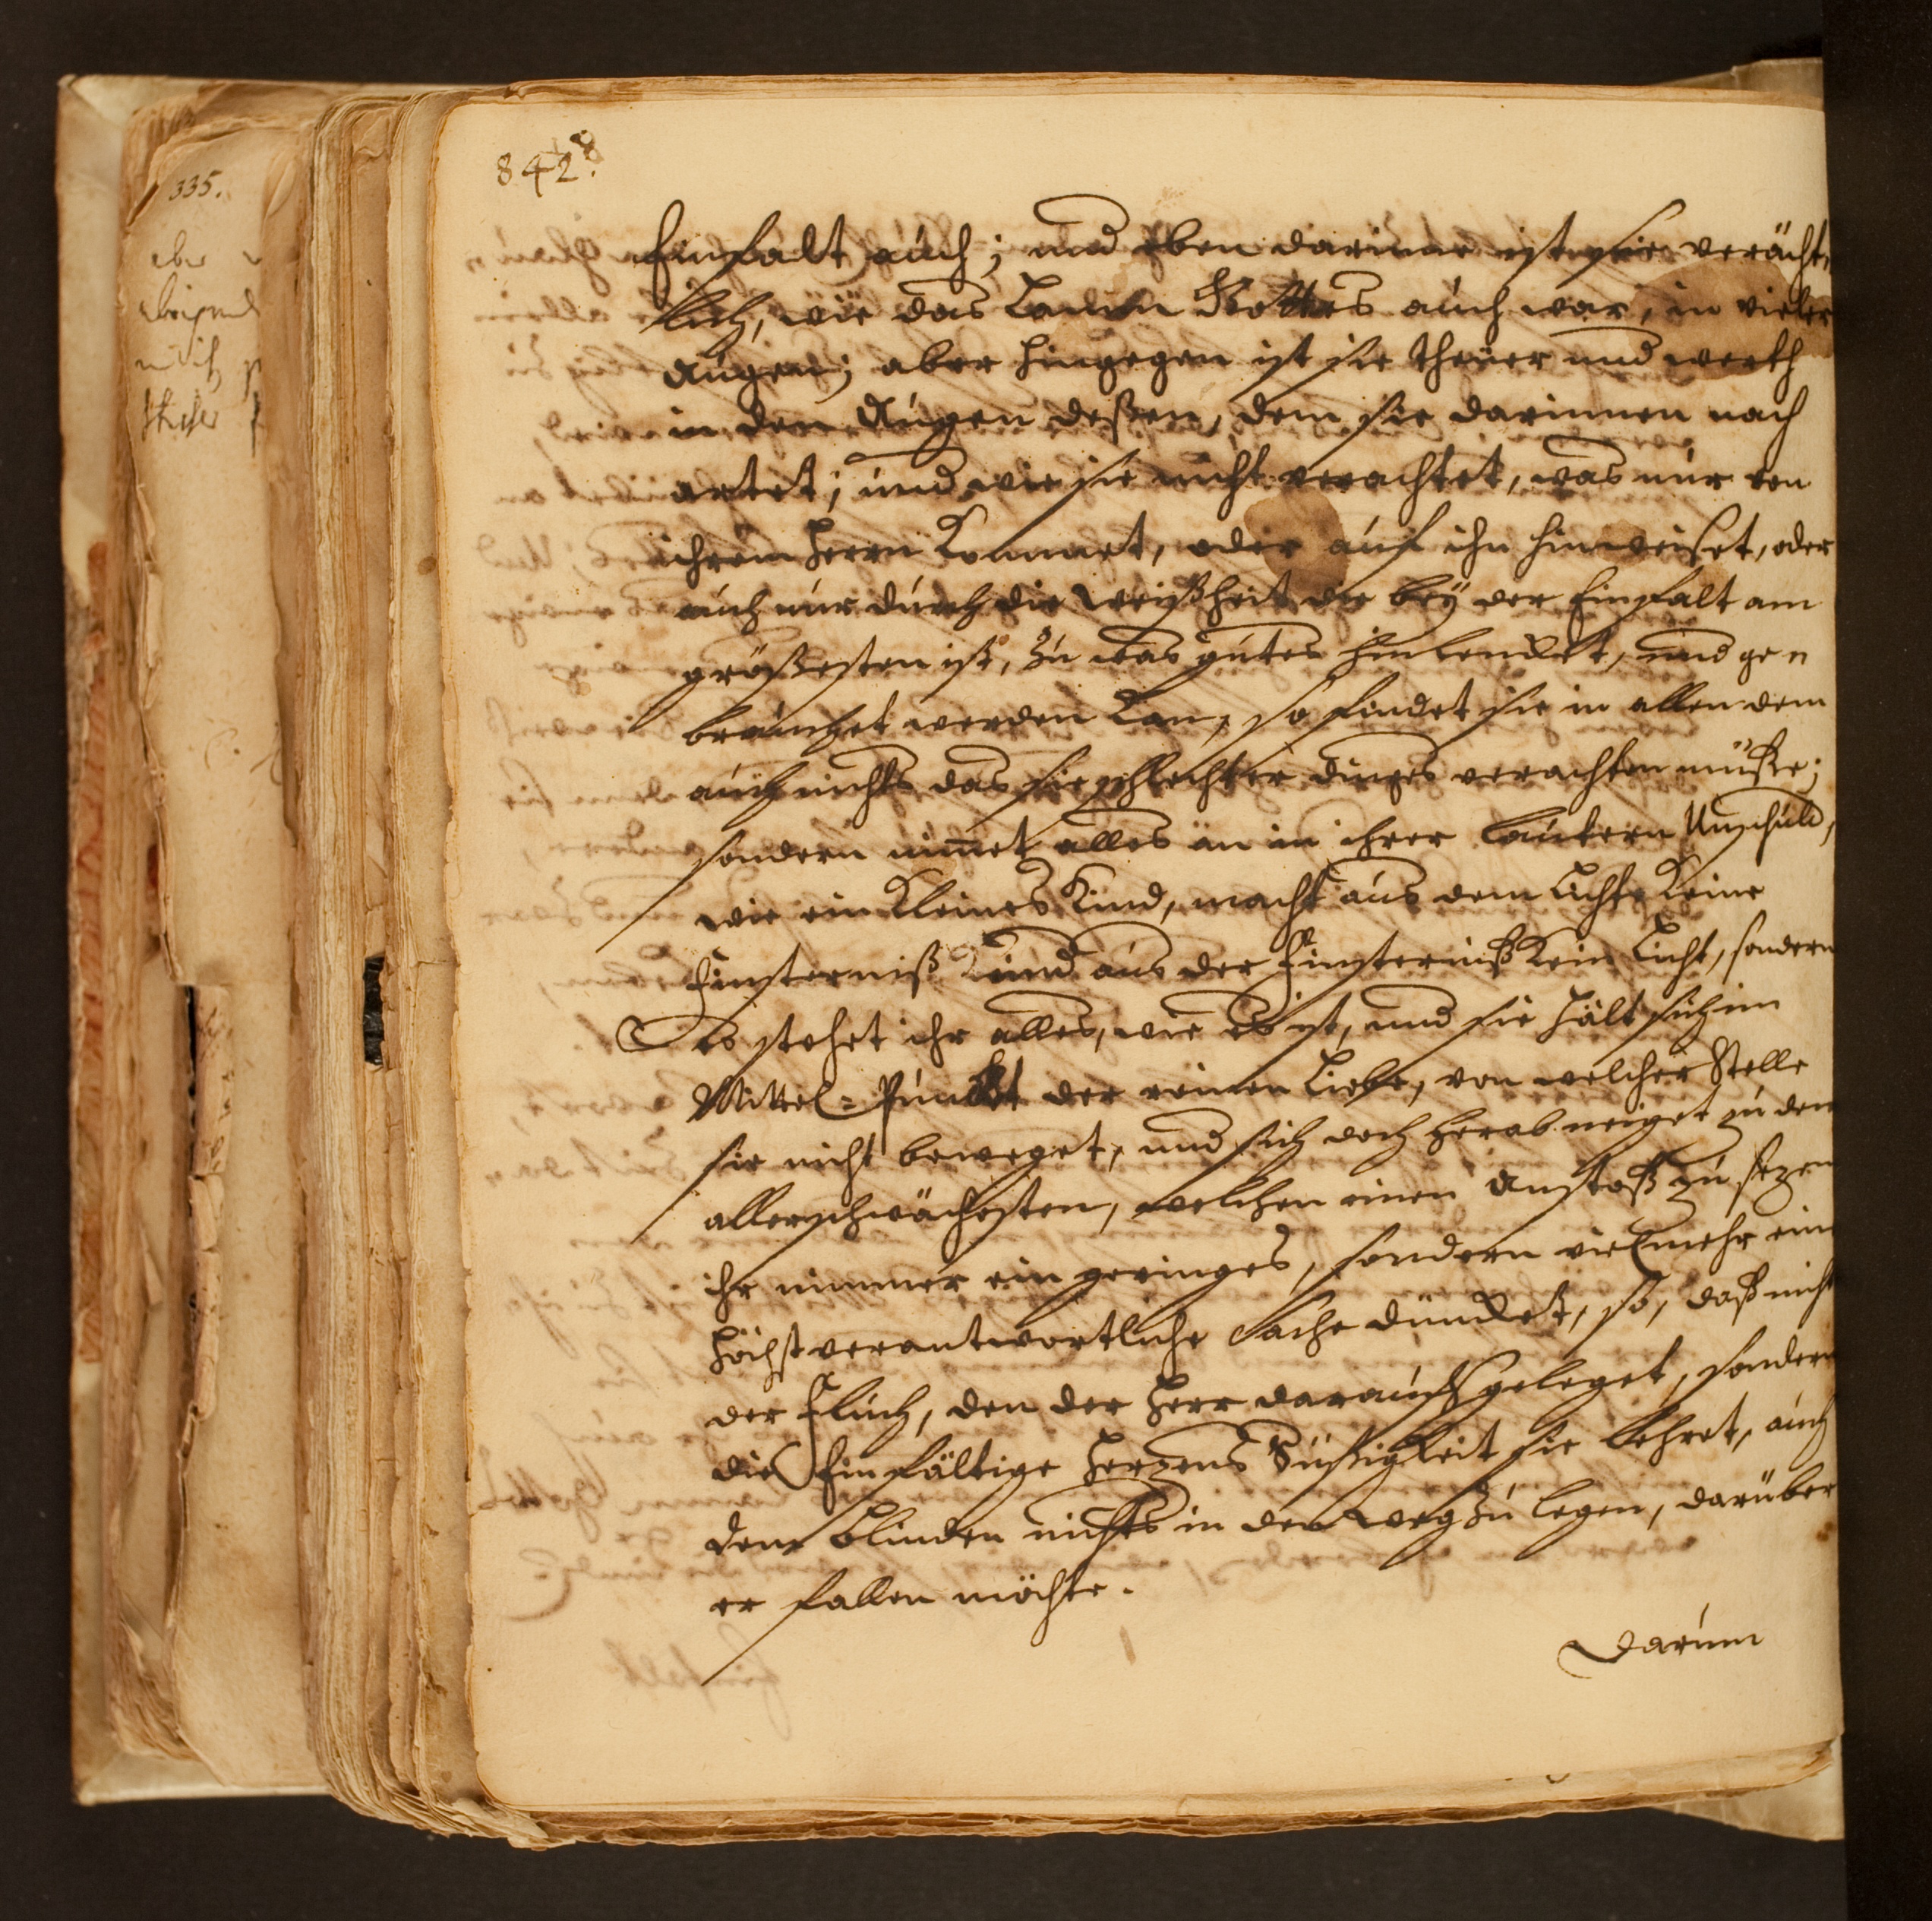 842.
335.
Einfalt auch; und eben darinne ist sie verächt-
lich, wie das Lamm Gottes auch war, in vieler
Augen; aber hingegen ist sie theuer und werth
in den Augen deßen, dem sie darinnen nach
artet; und wie sie nicht verachtet, was nur von
ihrem Herrn kommet, oder auf ihn hinweiset, oder
auch nur durch die Weißheit, die bey der Einfalt am
größesten ist, zu was gutes hin lencket, und ge-
brauchet werden kan, so findet sie in allen dem
auch nichts das sie schlechter dinges verachten müße;
sondern nimet alles an in ihrer lautern Unschuld,
wie ein kleines Kind, macht aus dem Lichte keine
Finsterniß und aus der Finsterniß kein Licht, sondern
es stehet ihr alles, wie es ist, und sie hält sich im
Mittel-Punckt der reinen Liebe, von welcher Stelle
sie nicht beweget, und sich doch herab neiget zu den
allerschwächesten, welchen einen Anstoß zu sezen
ihr nimmer ein geringes, sondern vielmehr eine
höchst verantwortliche Sache düncket, so, daß nicht
der Fluch, den der Herr darauf geleget, sondern
die Einfältige Herzens Süßigkeit sie lehret, auch
dem Blinden nichts in den Weg zu legen, darüber
er fallen möchte.
Darum